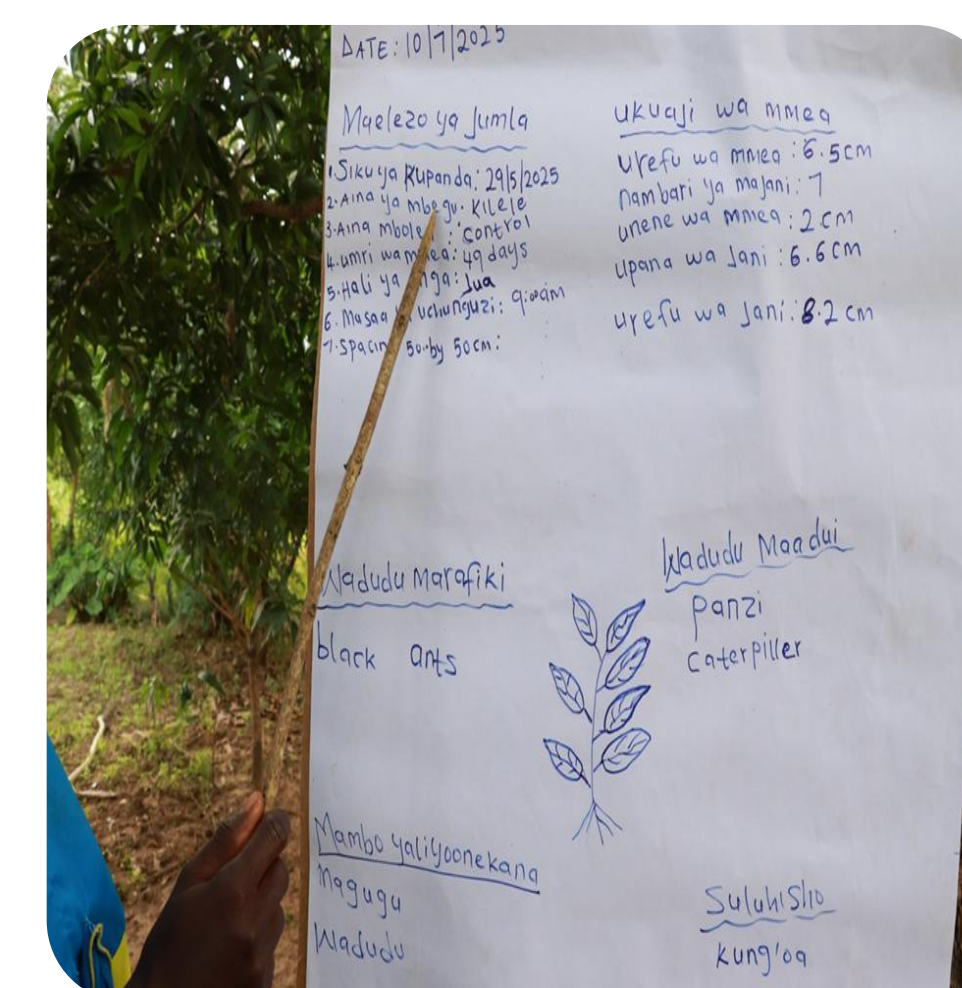 DATE: 10/7/2025
Maelezo ya Jumla
1. Siku ya Kupanda: 29/5/2025
2. Aina ya mbegu. Kilele
3. Aina mbole : control
4. umri wa mmea: 49 days
5. Hali ya anga: Jua
6. Masaa uchunguzi: 9:00am
7. spacing 50 by 50cm:
ukuaji wa mmea
urefu wa mmea : 6.5cm
nambari ya majani : 7
unene wa mmea : 2cm
upana wa Jani : 6.6cm
urefu wa Jani : 8.2cm
Wadudu Marafiki
black ants
Wadudu Maadui
panzi
caterpiller
Mambo yaliyoonekana
magugu
Wadudu
Suluhisho
kung'oa